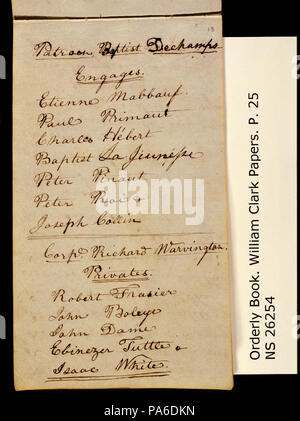 13
Patroon, Baptist Dechamps
Engages.
Etienne Mabbauf.
Paul Primaut
Charles Hébert
Baptist La Jeunesse
Peter Pinaut
Peter Roi
Joseph Collin
Corpl. Richard Warvington.
Privates.
Robert Frasier
John Boleye
John Dame
Ebinezer Tuttle
Isaac White.
Orderly Book. William Clark Papers. P. 25
NS 26254
alamy
PA6DKN